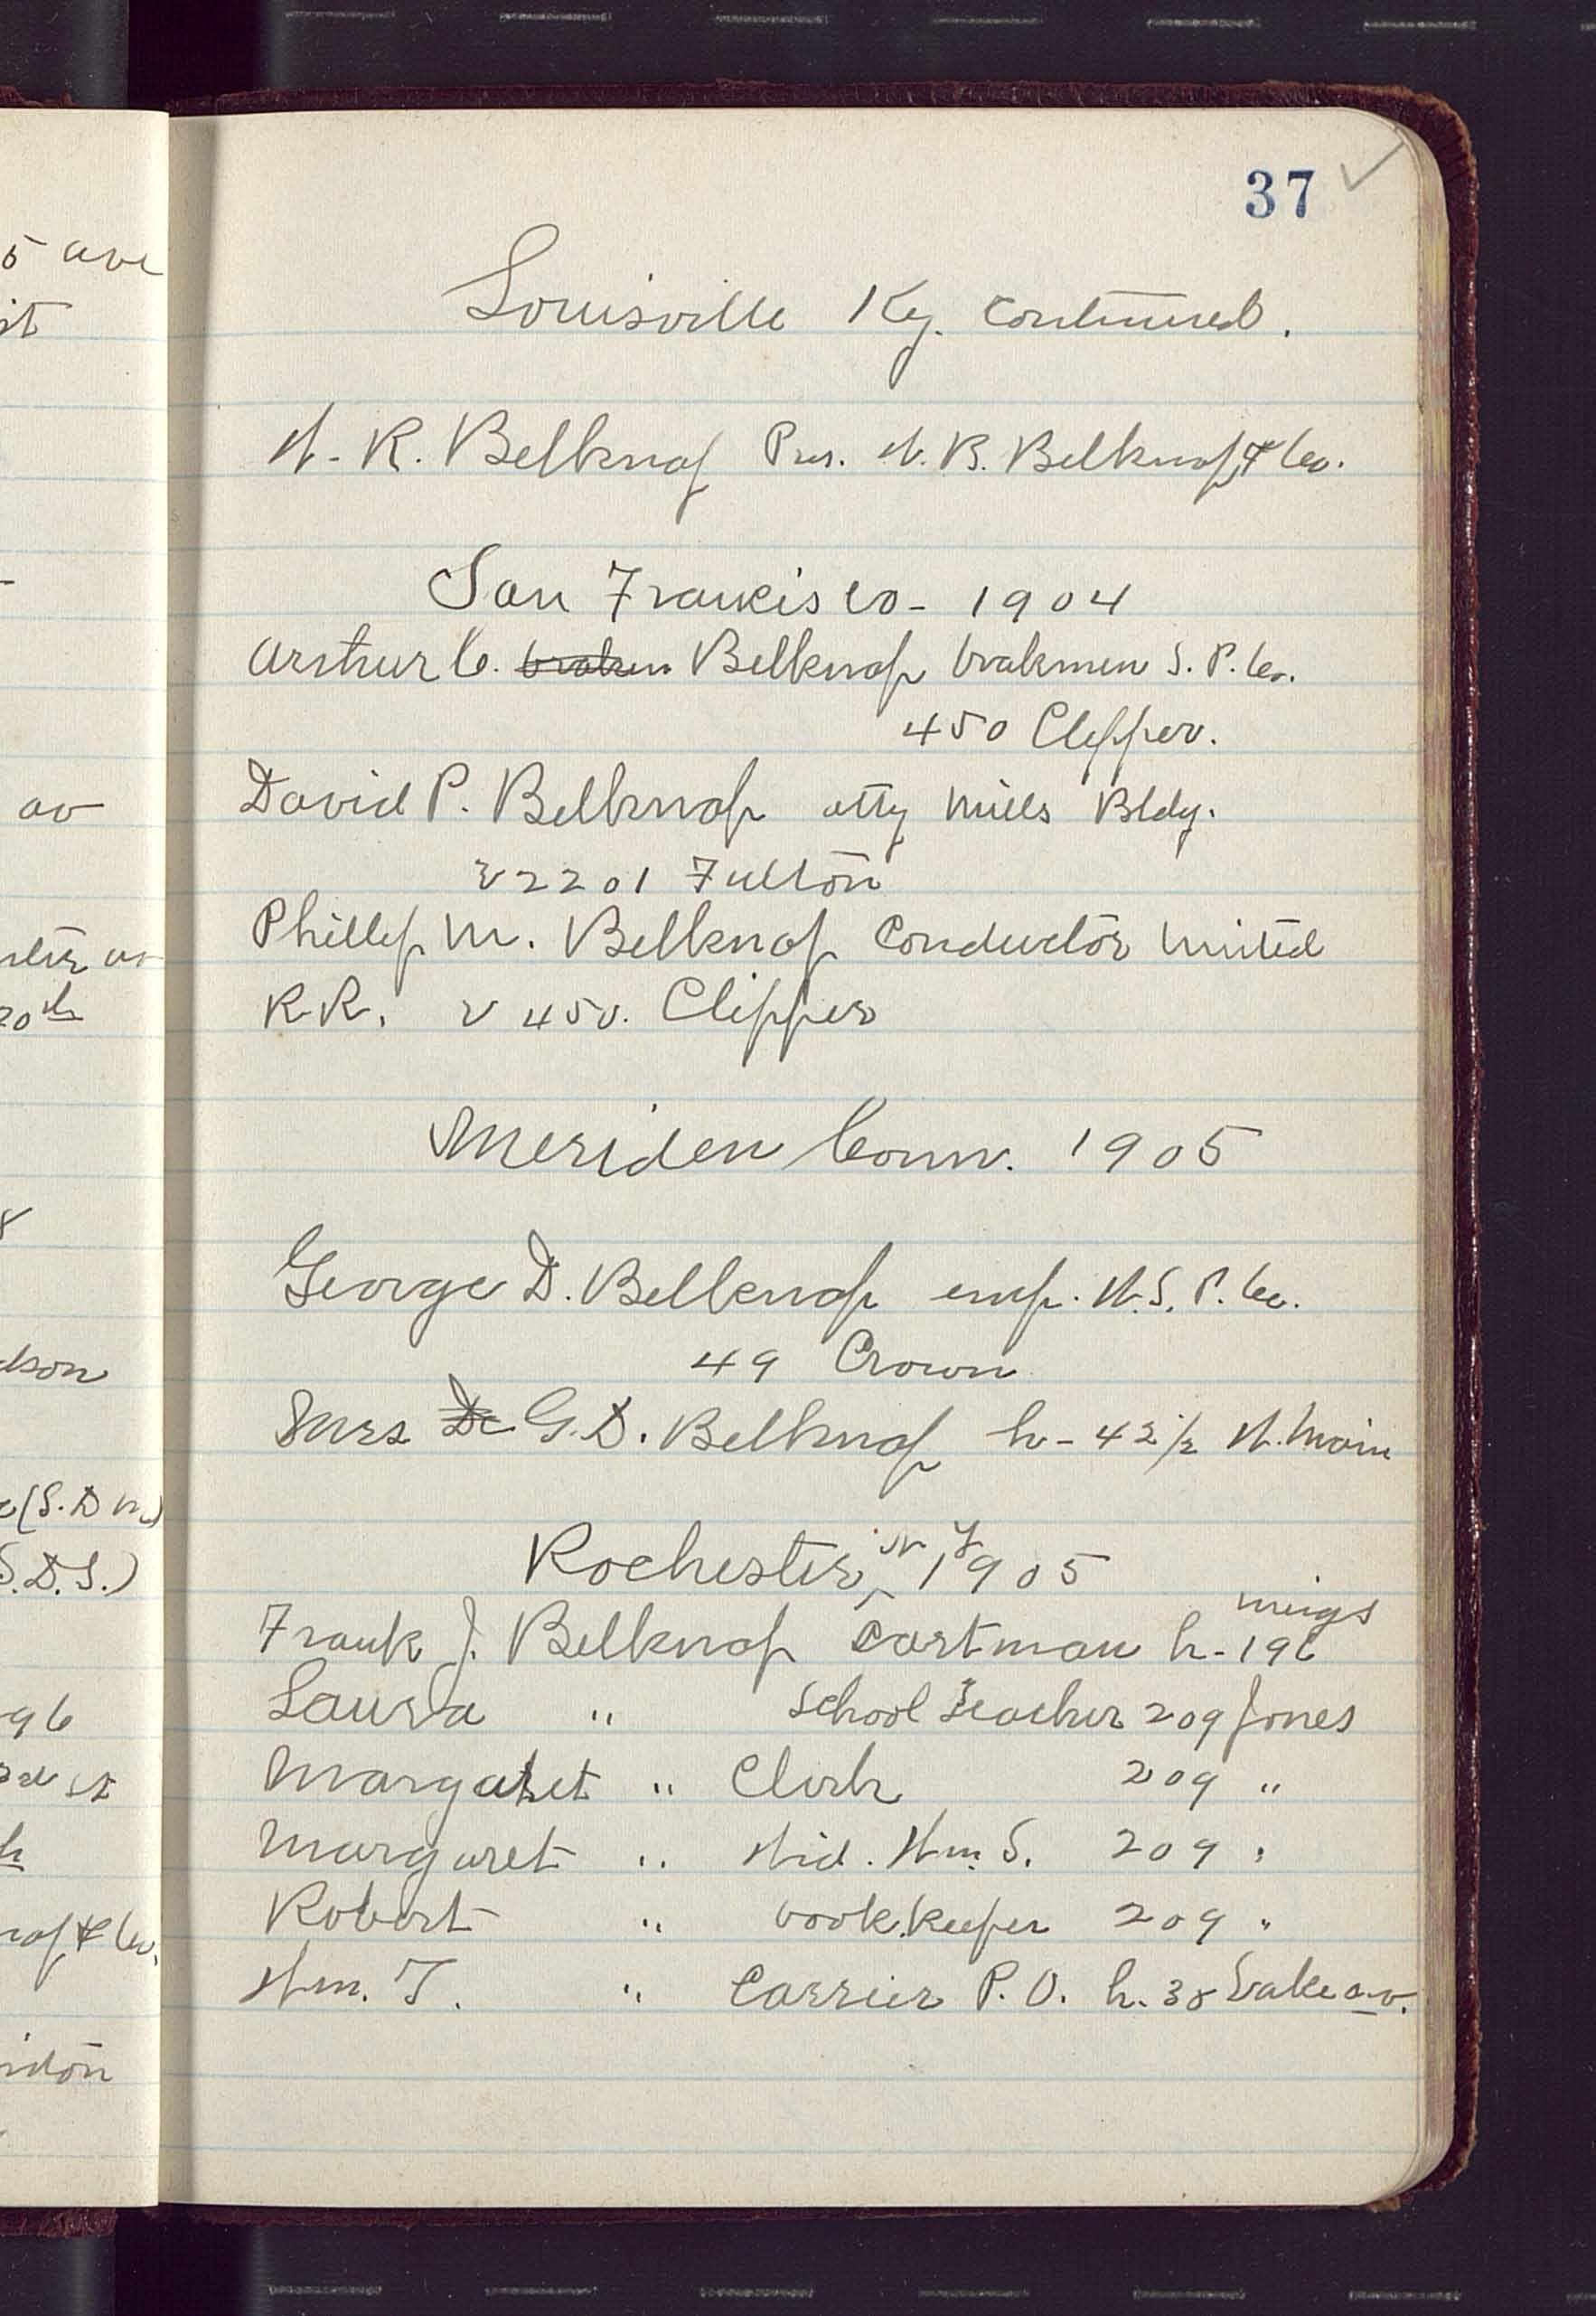 37
Louisville Ky. Continued.
W. R. Belknap Pres. W. B. Belknap & Co.
San Francisco - 1904
Arthur C. braken Belknap brakmen S. P. Co.
450 Clipper.
David P. Belknap atty Mills Bldg.
r 2201 Fulton
Phillip M. Belknap Conductor United
R.R. r 450. Clipper
Meriden Conn. 1905
George D. Belknap emp. W. S. P. Co.
49 Crown
Mrs De G. D. Belknap h - 42 1/2 W. Main
Rochester, N Y 1905
Frank J. Belknap Cartman h - 196 Meigs
Laura " School Teacher 209 Jones
Margaret " Clerk 209 "
Margaret " Wid. Wm. S. 209 "
Robert " bookkeeper 209 "
Wm. T. " Carrier P. O. h. 38 Lake av.
5 ave
st
av
20th
8
(S. D. S.)
96
& Co.